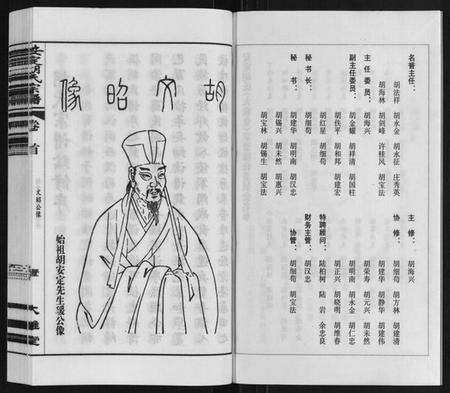 名誉主任：
胡法祥 胡水金 胡水征 庄秀英
胡海林 胡剑峰 许桂凤 胡宝法
主任委员： 胡海兴
副主任委员： 胡金耀 胡祥清 胡国柱
胡佚平 胡和邦 胡建宏
秘书长： 胡红星 胡细苟
秘书： 胡建华 胡明南 胡汉忠
胡锡兴 胡未然 胡惠兴
胡宝林 胡锡生 胡宝法
主修： 胡海兴
协修： 胡细苟 胡方林 胡建清
胡建华 胡静华 胡建伟
胡荣寿 胡元兴 胡未然
胡明南 胡水金 胡仁忠
胡正兴 胡晓明 胡维春
特聘顾问： 陆柏树 陆岩 余忠良
财务主管： 胡汉忠
协管： 胡细苟 胡宝法
胡文昭像
始祖胡安定先生瑗公像
胡氏宗谱
卷首
文昭公像
壹
大雅堂